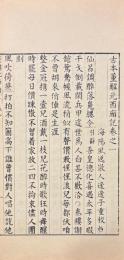 古本董解元西廂記卷之一
海陽風逸散人適適子重校梓
仙呂調醉落魄纏令引辭吾皇德化喜遇太平多暇
干戈倒載閑兵甲這世爲人白甚不歡洽秦樓謝
館鴛鴦幄風流稍似有聲價教惺惺浪兒每都伏咱
不曾胡來俏倬是生涯
整金冠攜一壺兒酒戴一枝兒花醉時歌狂時舞醒
時罷每日價疎散不曾着家放二四不拘束儘人團
剝
風吹荷葉打拍不知箇高下誰曾慣對人唱他說他